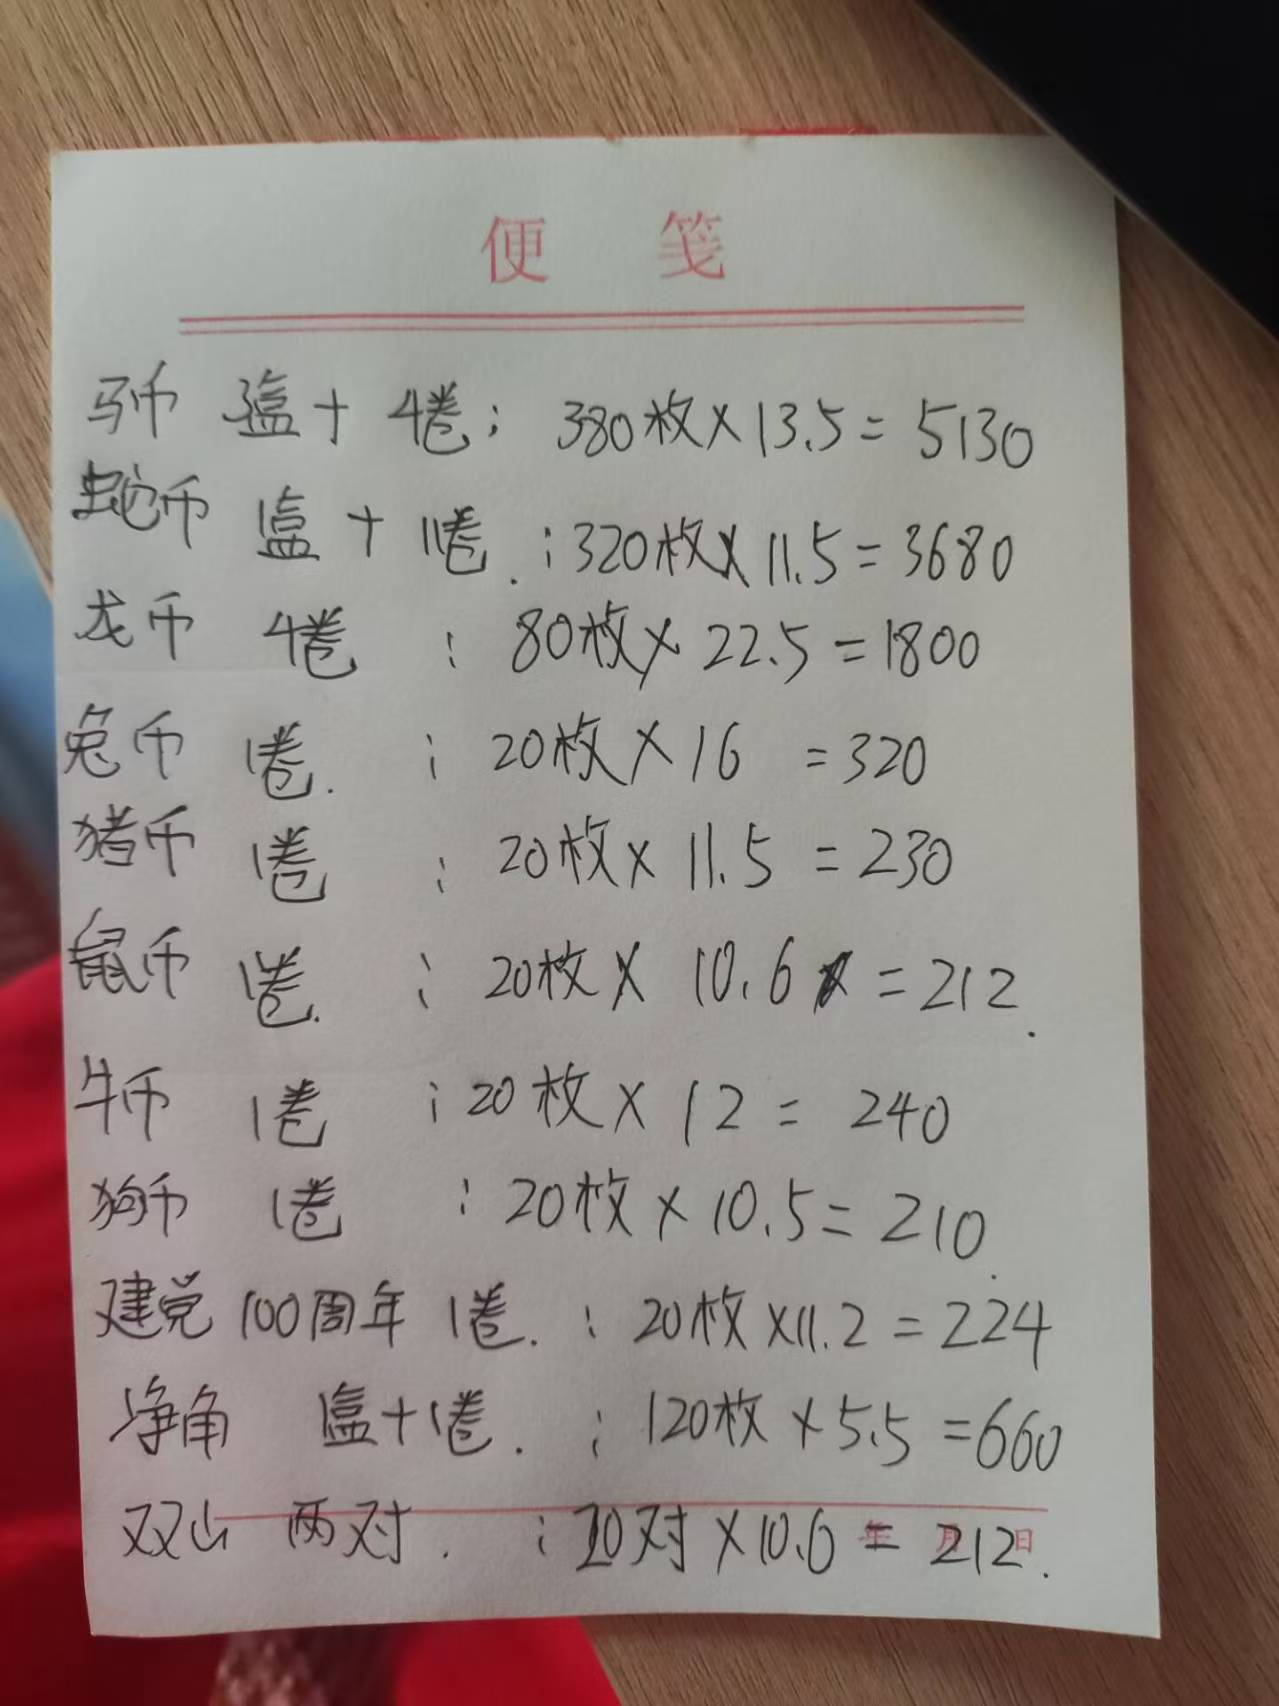 便笺
马币 3盒+4卷: 380枚×13.5=5130
蛇币 1盒+11卷.:320枚×11.5=3680
龙币 4卷:80枚×22.5=1800
兔币 1卷.:20枚×16=320
猪币 1卷:20枚×11.5=230
鼠币 1卷.:20枚×10.6=212.
牛币 1卷:20枚×12=240
狗币 1卷:20枚×10.5=210.
建党100周年 1卷.:20枚×11.2=224
净角 1盒+1卷.:120枚×5.5=660
双山 两对.:20对×10.6=212.
年 月 日